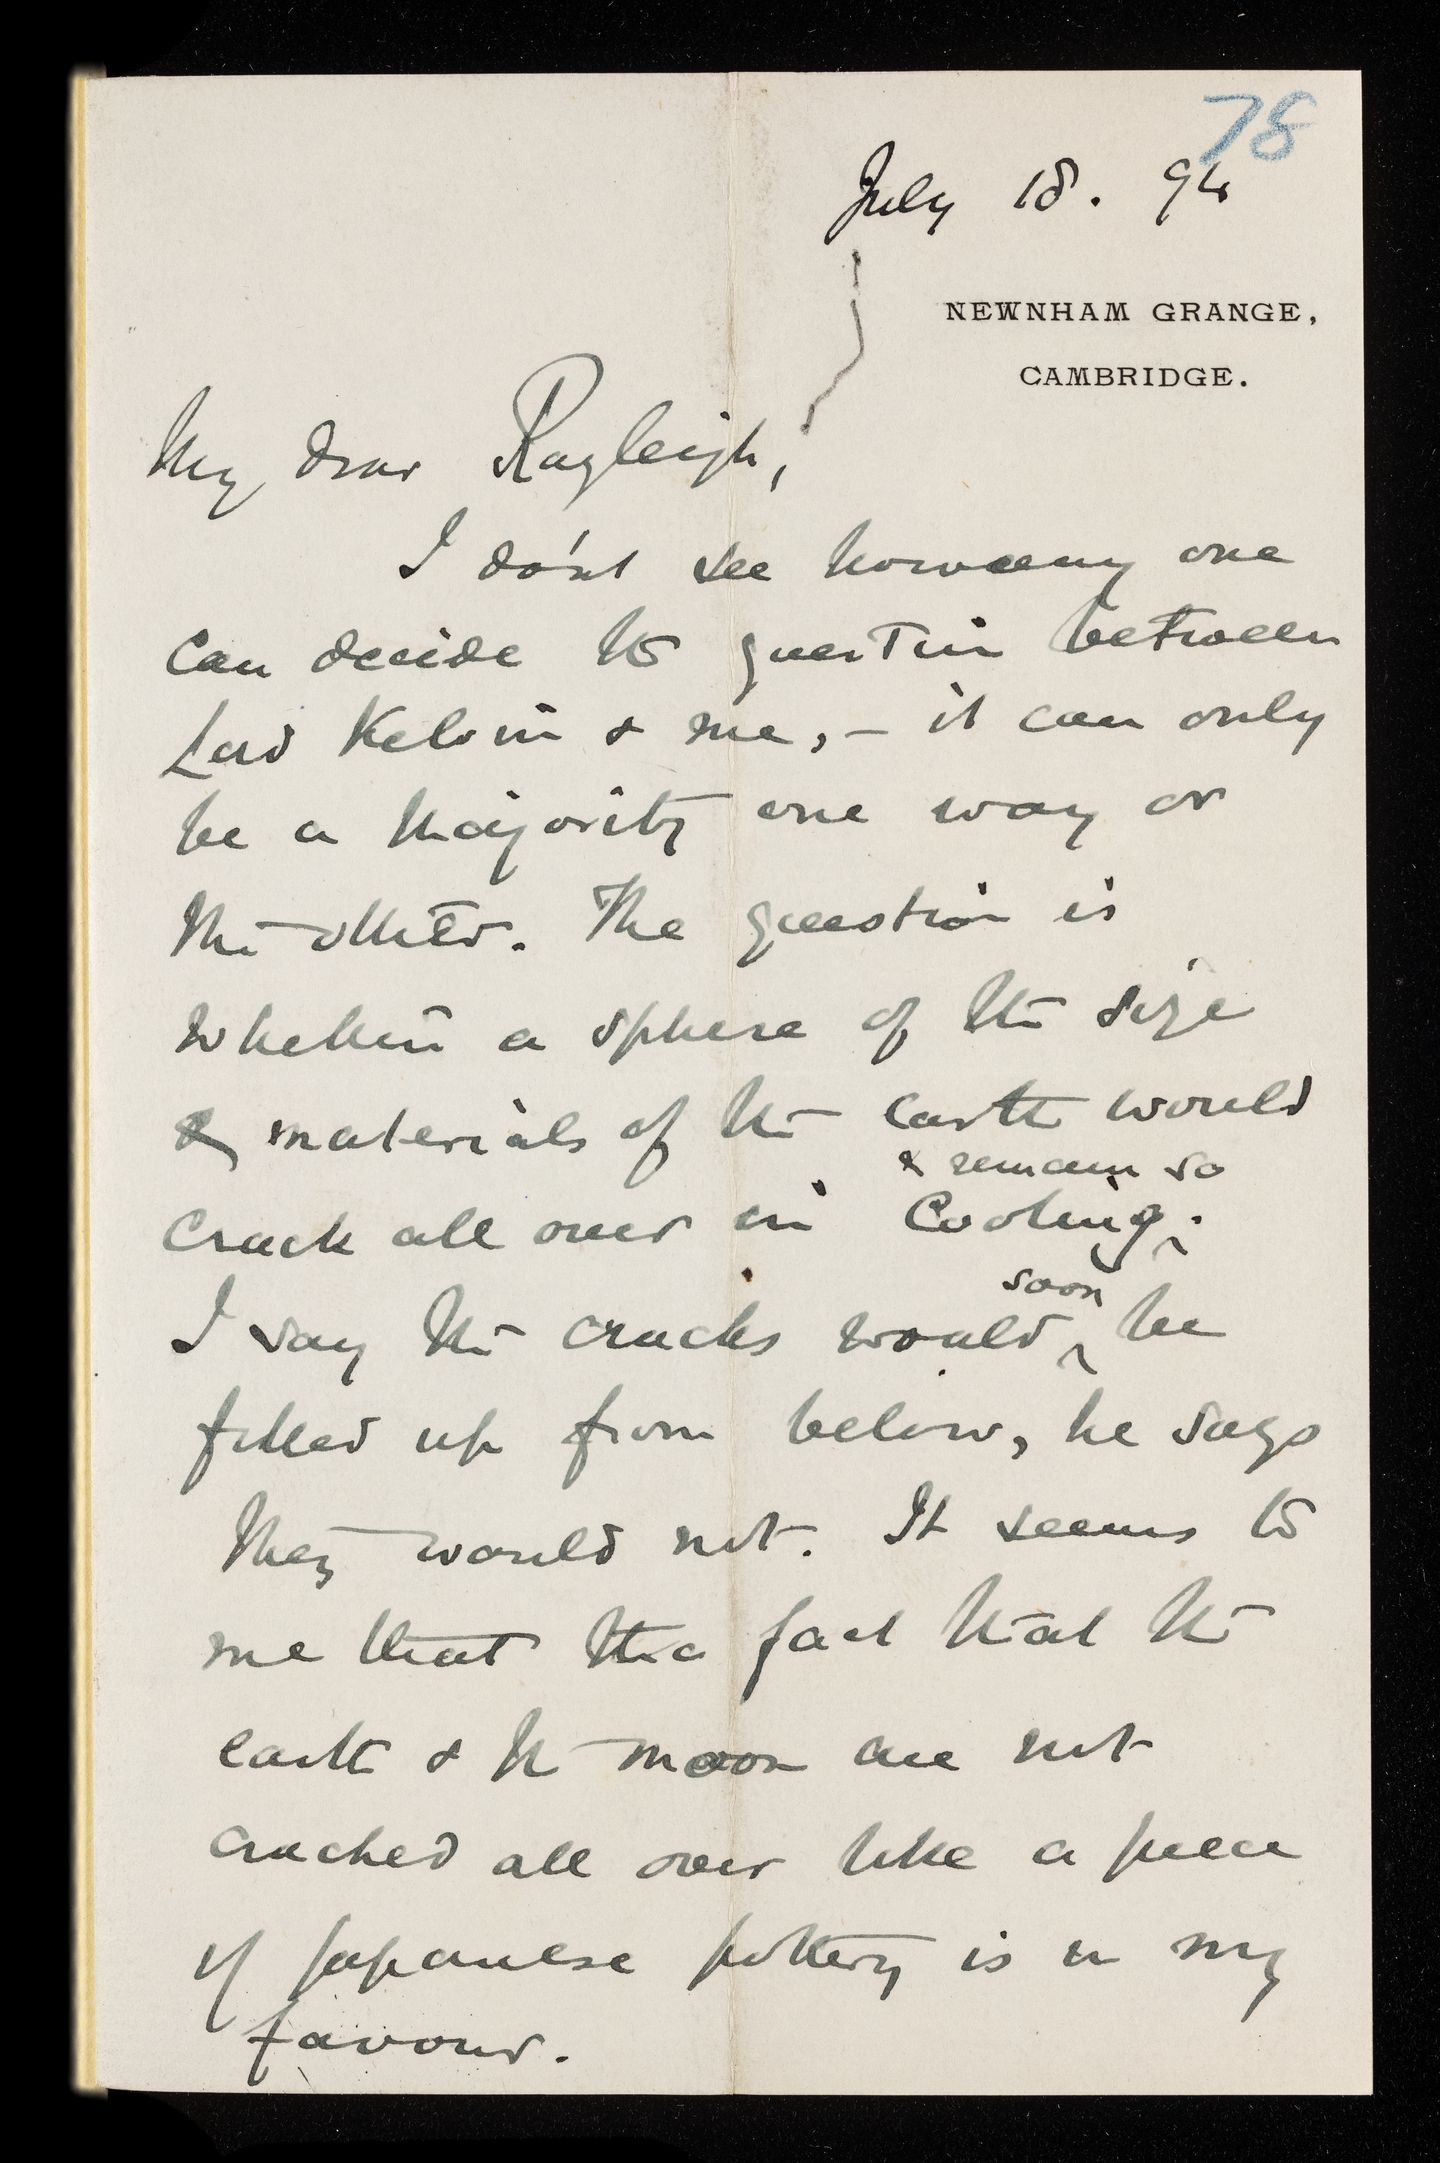 78
July 18. 94
NEWNHAM GRANGE,
CAMBRIDGE.
My dear Rayleigh,
I do'nt see how any one
can decide the question between
Lord Kelvin & me, – it can only
be a majority one way or
the other. The question is
whether a sphere of the size
& materials of the earth would
& remain so
crack all over in cooling.
soon
I say the cracks would be
filled up from below, he says
they would not. It seems to
me that the fact that the
earth & the moon are not
cracked all over like a piece
of Japanese pottery is in my
favour.